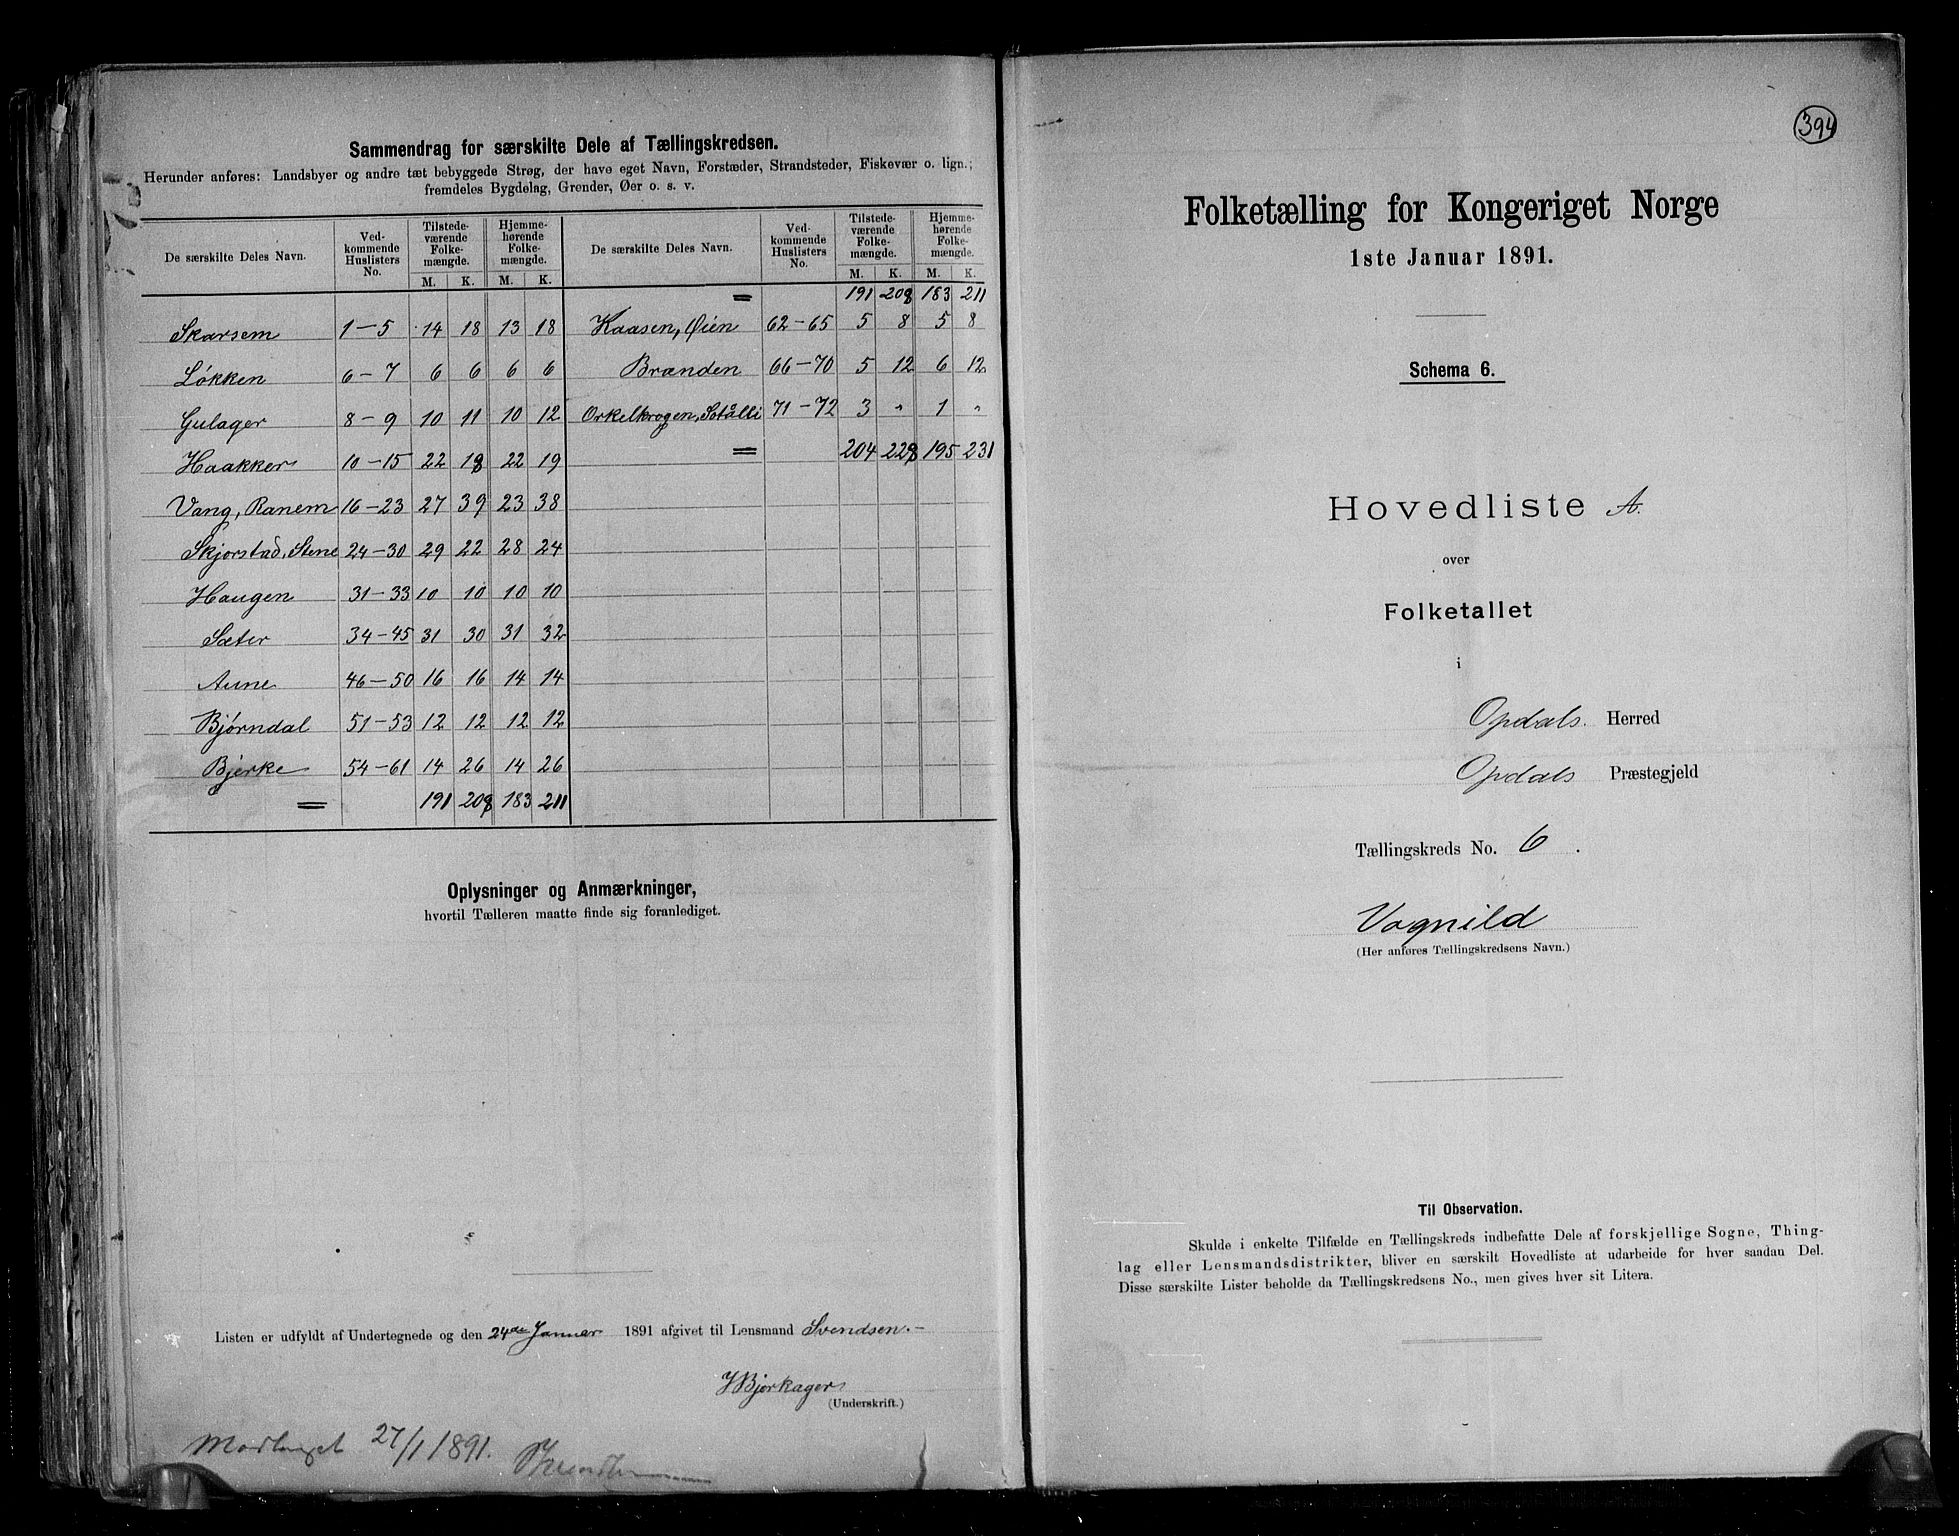 Sammendrag for særskilte Dele af Tællingskredsen.
Herunder anføres: Landsbyer og andre tæt bebyggede Strøg, der have eget Navn, Forstæder, Strandsteder, Fiskevær o. lign.;
fremdeles Bygdelag, Grender, Øer o. s. v.
De særskilte Deles Navn. Ved-kommende Huslisters No. Tilstede-værende Folke-mængde. Hjemme-hørende Folke-mængde. De særskilte Deles Navn. Ved-kommende Huslisters No. Tilstede-værende Folke-mængde. Hjemme-hørende Folke-mængde.
M. K. M. K. M. K. M. K.
= 191 208 183 211
Skarsem 1-5 14 18 13 18 Haasen, Øien 62-65 5 8 5 8
Løkken 6-7 6 6 6 6 Brænden 66-70 5 12 6 12
Gulager 8-9 10 11 10 12 Orkelkrogen, Sætålli 71-72 3 " 1 "
Haakker 10-15 22 18 22 19 = 204 228 195 231
Vang, Ranem 16-23 27 39 23 38
Skjørstad, Stene 24-30 29 22 28 24
Haugen 31-33 10 10 10 10
Sæter 34-45 31 30 31 32
Aune 46-50 16 16 14 14
Bjørndal 51-53 12 12 12 12
Bjerke 54-61 14 26 14 26
= 191 208 183 211
Oplysninger og Anmærkninger,
hvortil Tælleren maatte finde sig foranlediget.
Listen er udfyldt af Undertegnede og den 24de Januar 1891 afgivet til Lensmand Svendsen.-
HBjørkager
(Underskrift.)
Modtaget 27/1 1891.
394
Folketælling for Kongeriget Norge
1ste Januar 1891.
Schema 6.
Hovedliste A.
over
Folketallet
i
Opdals Herred
Opdals Præstegjeld
Tællingskreds No. 6.
Vognild
(Her anføres Tællingskredsens Navn.)
Til Observation.
Skulde i enkelte Tilfælde en Tællingskreds indbefatte Dele af forskjellige Sogne, Thing-
lag eller Lensmandsdistrikter, bliver en særskilt Hovedliste at udarbeide for hver saadan Del.
Disse særskilte Lister beholde da Tællingskredsens No., men gives hver sit Litera.